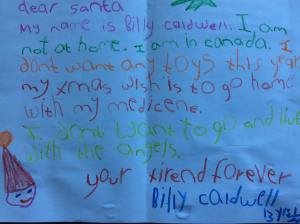 dear santa
my name is Billy caldwell. I am
not at home. I am in canada. I
dont want any toys this year
my xmas wish is to go home
with my medicene.
I dont want to go and live
with the angels.
your friend forever
Billy caldwell
13 yrs